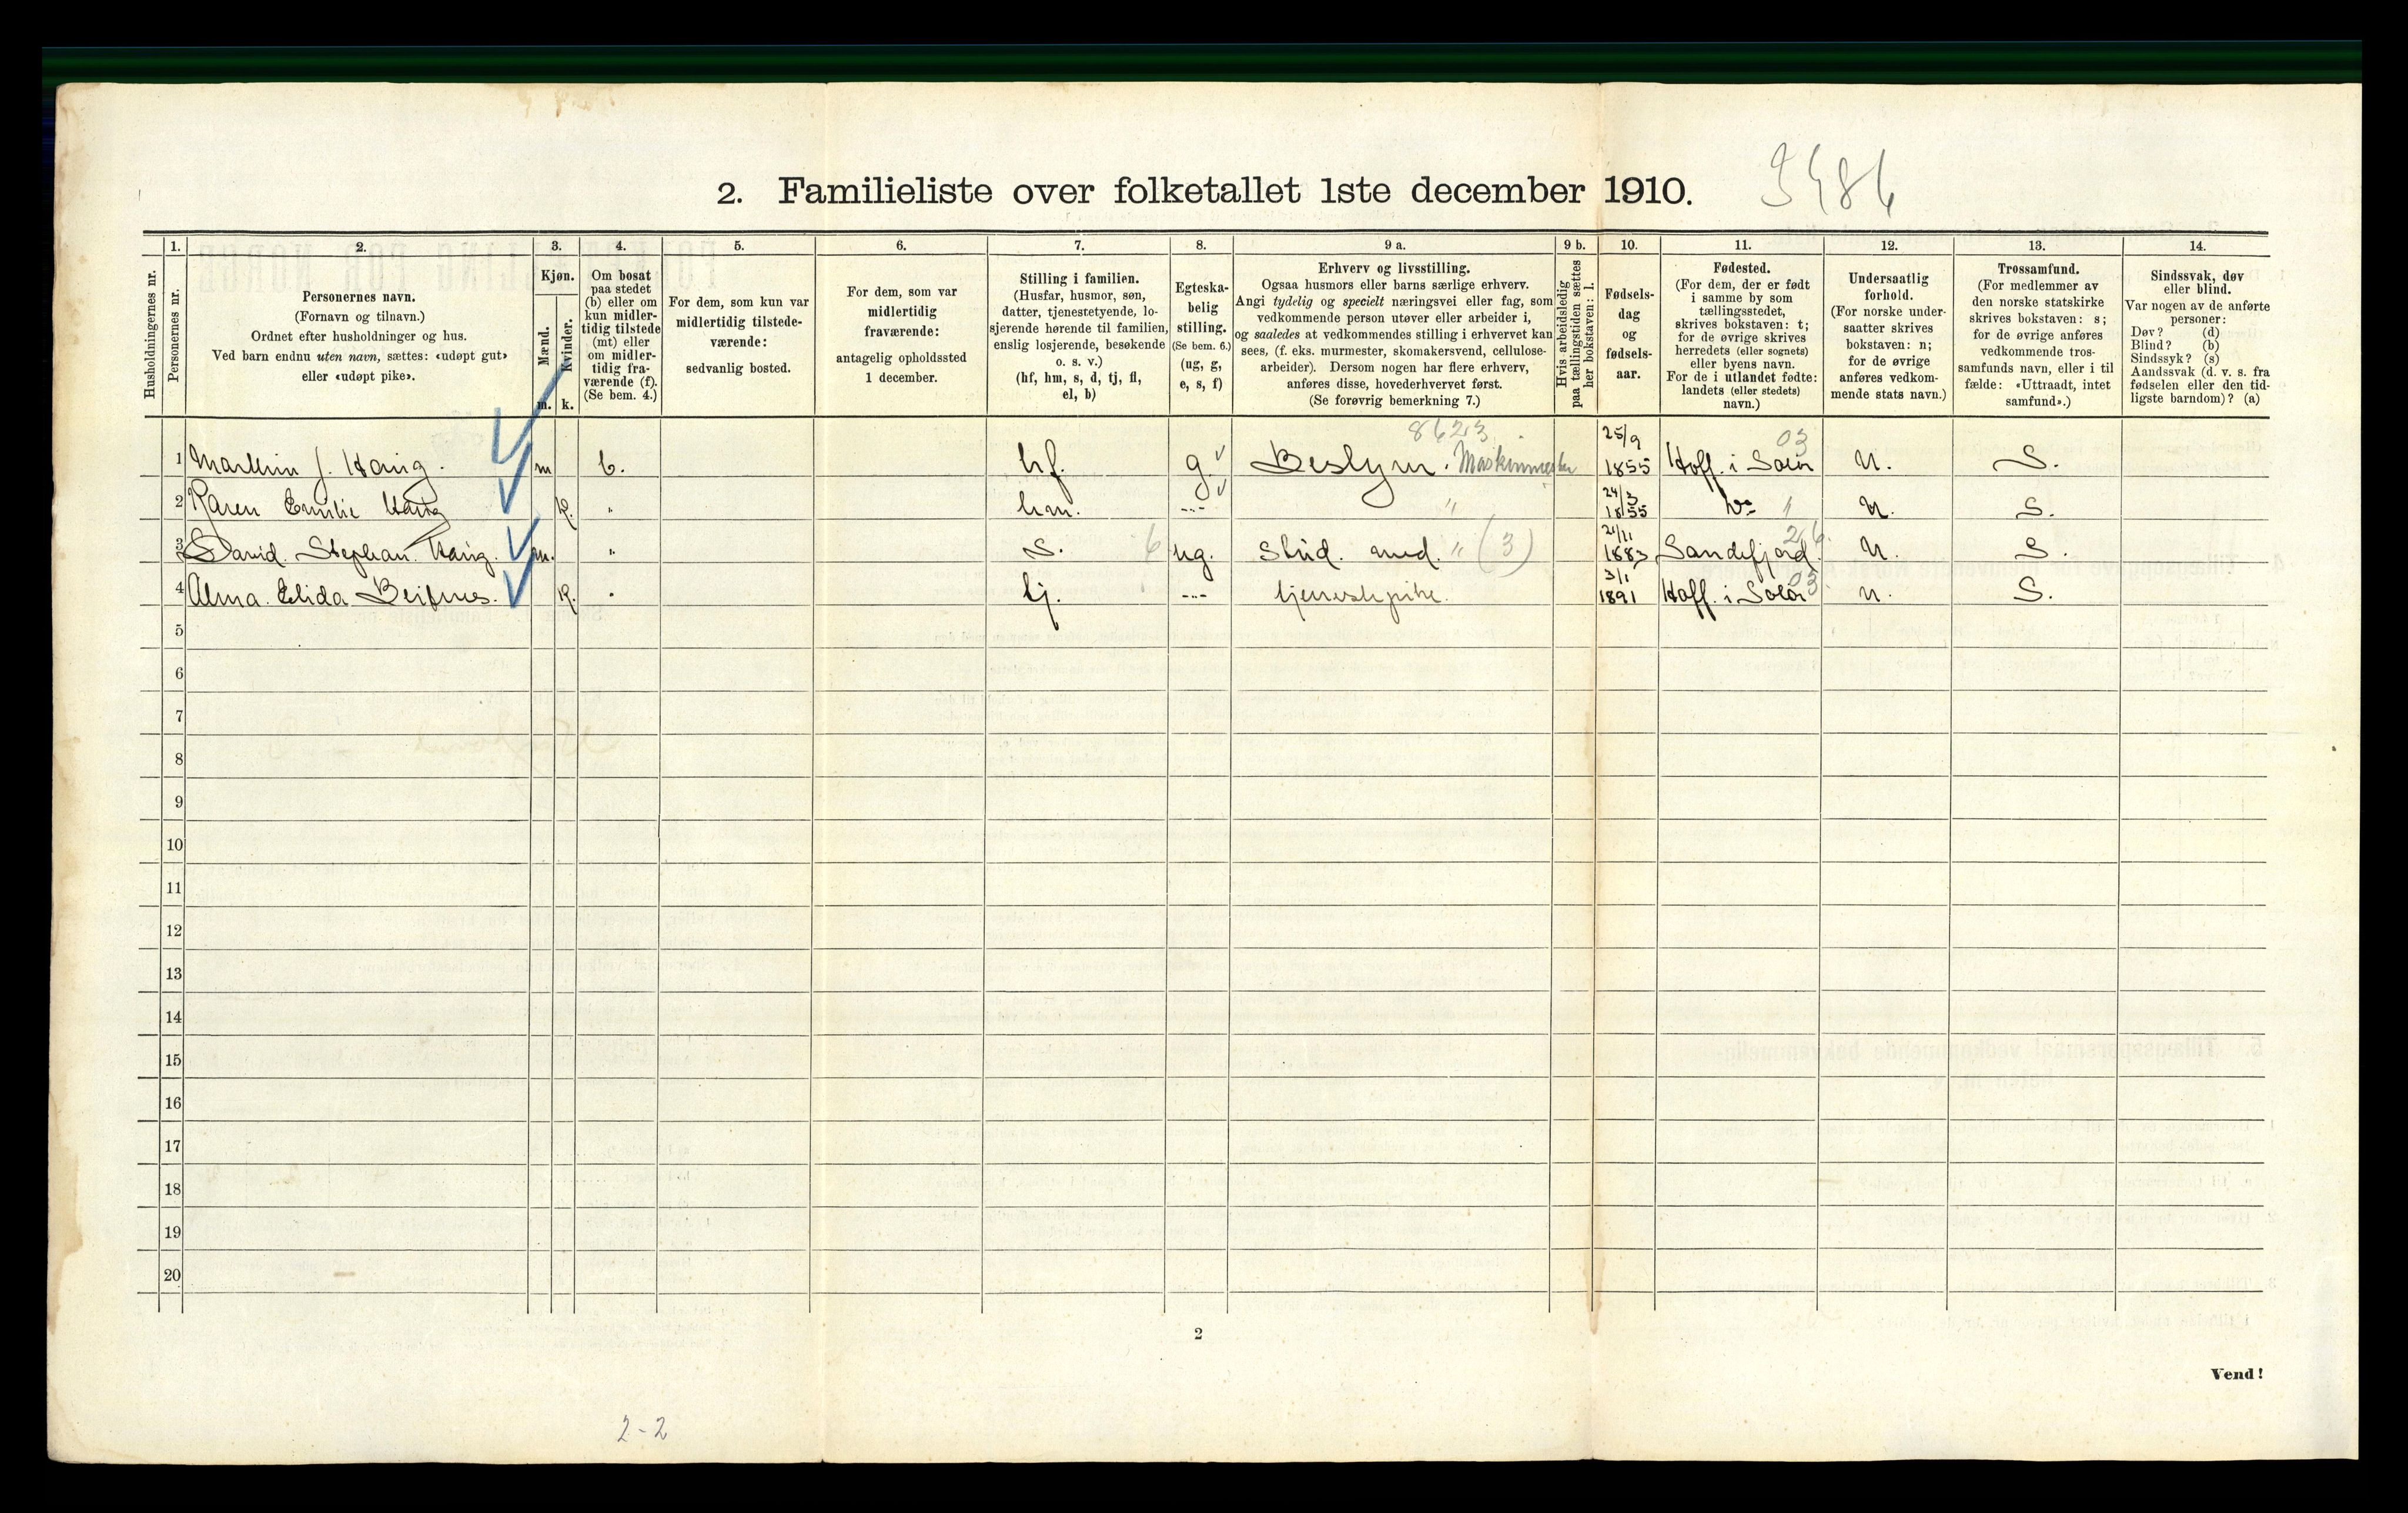 2. Familieliste over folketallet 1ste december 1910.
Husholdningernes nr.
1.
Personernes nr.
2.
Personernes navn.
(Fornavn og tilnavn.)
Ordnet efter husholdninger og hus.
Ved barn endnu uten navn, sættes: «udøpt gut»
eller «udøpt pike».
3.
Kjøn.
Mænd.
Kvinder.
m. k.
4.
Om bosat
paa stedet
(b) eller om
kun midler-
tidig tilstede
(mt) eller
om midler-
tidig fra-
værende (f).
(Se bem. 4.)
5.
For dem, som kun var
midlertidig tilstede-
værende:
sedvanlig bosted.
6.
For dem, som var
midlertidig
fraværende:
antagelig opholdssted
1 december.
7.
Stilling i familien.
(Husfar, husmor, søn,
datter, tjenestetyende, lo-
sjerende hørende til familien,
enslig losjerende, besøkende
o. s. v.)
(hf, hm, s, d, tj, fl,
el, b)
8.
Egteska-
belig
stilling.
(Se bem. 6.)
(ug, g,
e, s, f)
9 a.
Erhverv og livsstilling.
Ogsaa husmors eller barns særlige erhverv.
Angi tydelig og specielt næringsvei eller fag, som
vedkommende person utøver eller arbeider i,
og saaledes at vedkommendes stilling i erhvervet kan
sees, (f. eks. murmester, skomakersvend, cellulose-
arbeider). Dersom nogen har flere erhverv,
anføres disse, hovederhvervet først.
(Se forøvrig bemerkning 7.)
9 b.
Hvis arbeidsledig
paa tællingstiden sættes
her bokstaven: l.
10.
Fødsels-
dag
og
fødsels-
aar.
11.
Fødested.
(For dem, der er født
i samme by som
tællingsstedet,
skrives bokstaven: t;
for de øvrige skrives
herredets (eller sognets)
eller byens navn.
For de i utlandet fødte:
landets (eller stedets)
navn.)
12.
Undersaatlig
forhold.
(For norske under-
saatter skrives
bokstaven: n;
for de øvrige
anføres vedkom-
mende stats navn.)
13.
Trossamfund.
(For medlemmer av
den norske statskirke
skrives bokstaven: s;
for de øvrige anføres
vedkommende tros-
samfunds navn, eller i til
fælde: «Uttraadt, intet
samfund».)
14.
Sindssvak, døv
eller blind.
Var nogen av de anførte
personer:
Døv? (d)
Blind? (b)
Sindssyk? (s)
Aandssvak (d. v. s. fra
fødselen eller den tid-
ligste barndom)? (a)
8623 25/9 03
1 J. Haug. m b. hf. g. Maskinmester 1855 Hoff. i Solør n. S.
2 Karen Emilie Haug k. " hm. -"- " 24/3 1855 Do 1 n. S.
3 David. Stephan. Haug. m. " s. 6 ug. Stud. med. " (3) 21/11 1883 Sandefjord. 26 n. S.
4 Alma. Elida k. " tj. -"- tjenestepike. 3/1 1891 Hoff. i Solør 03 n. S.
5
6
7
8
9
10
11
12
13
14
15
16
17
18
19
20
2
Vend!
2-2